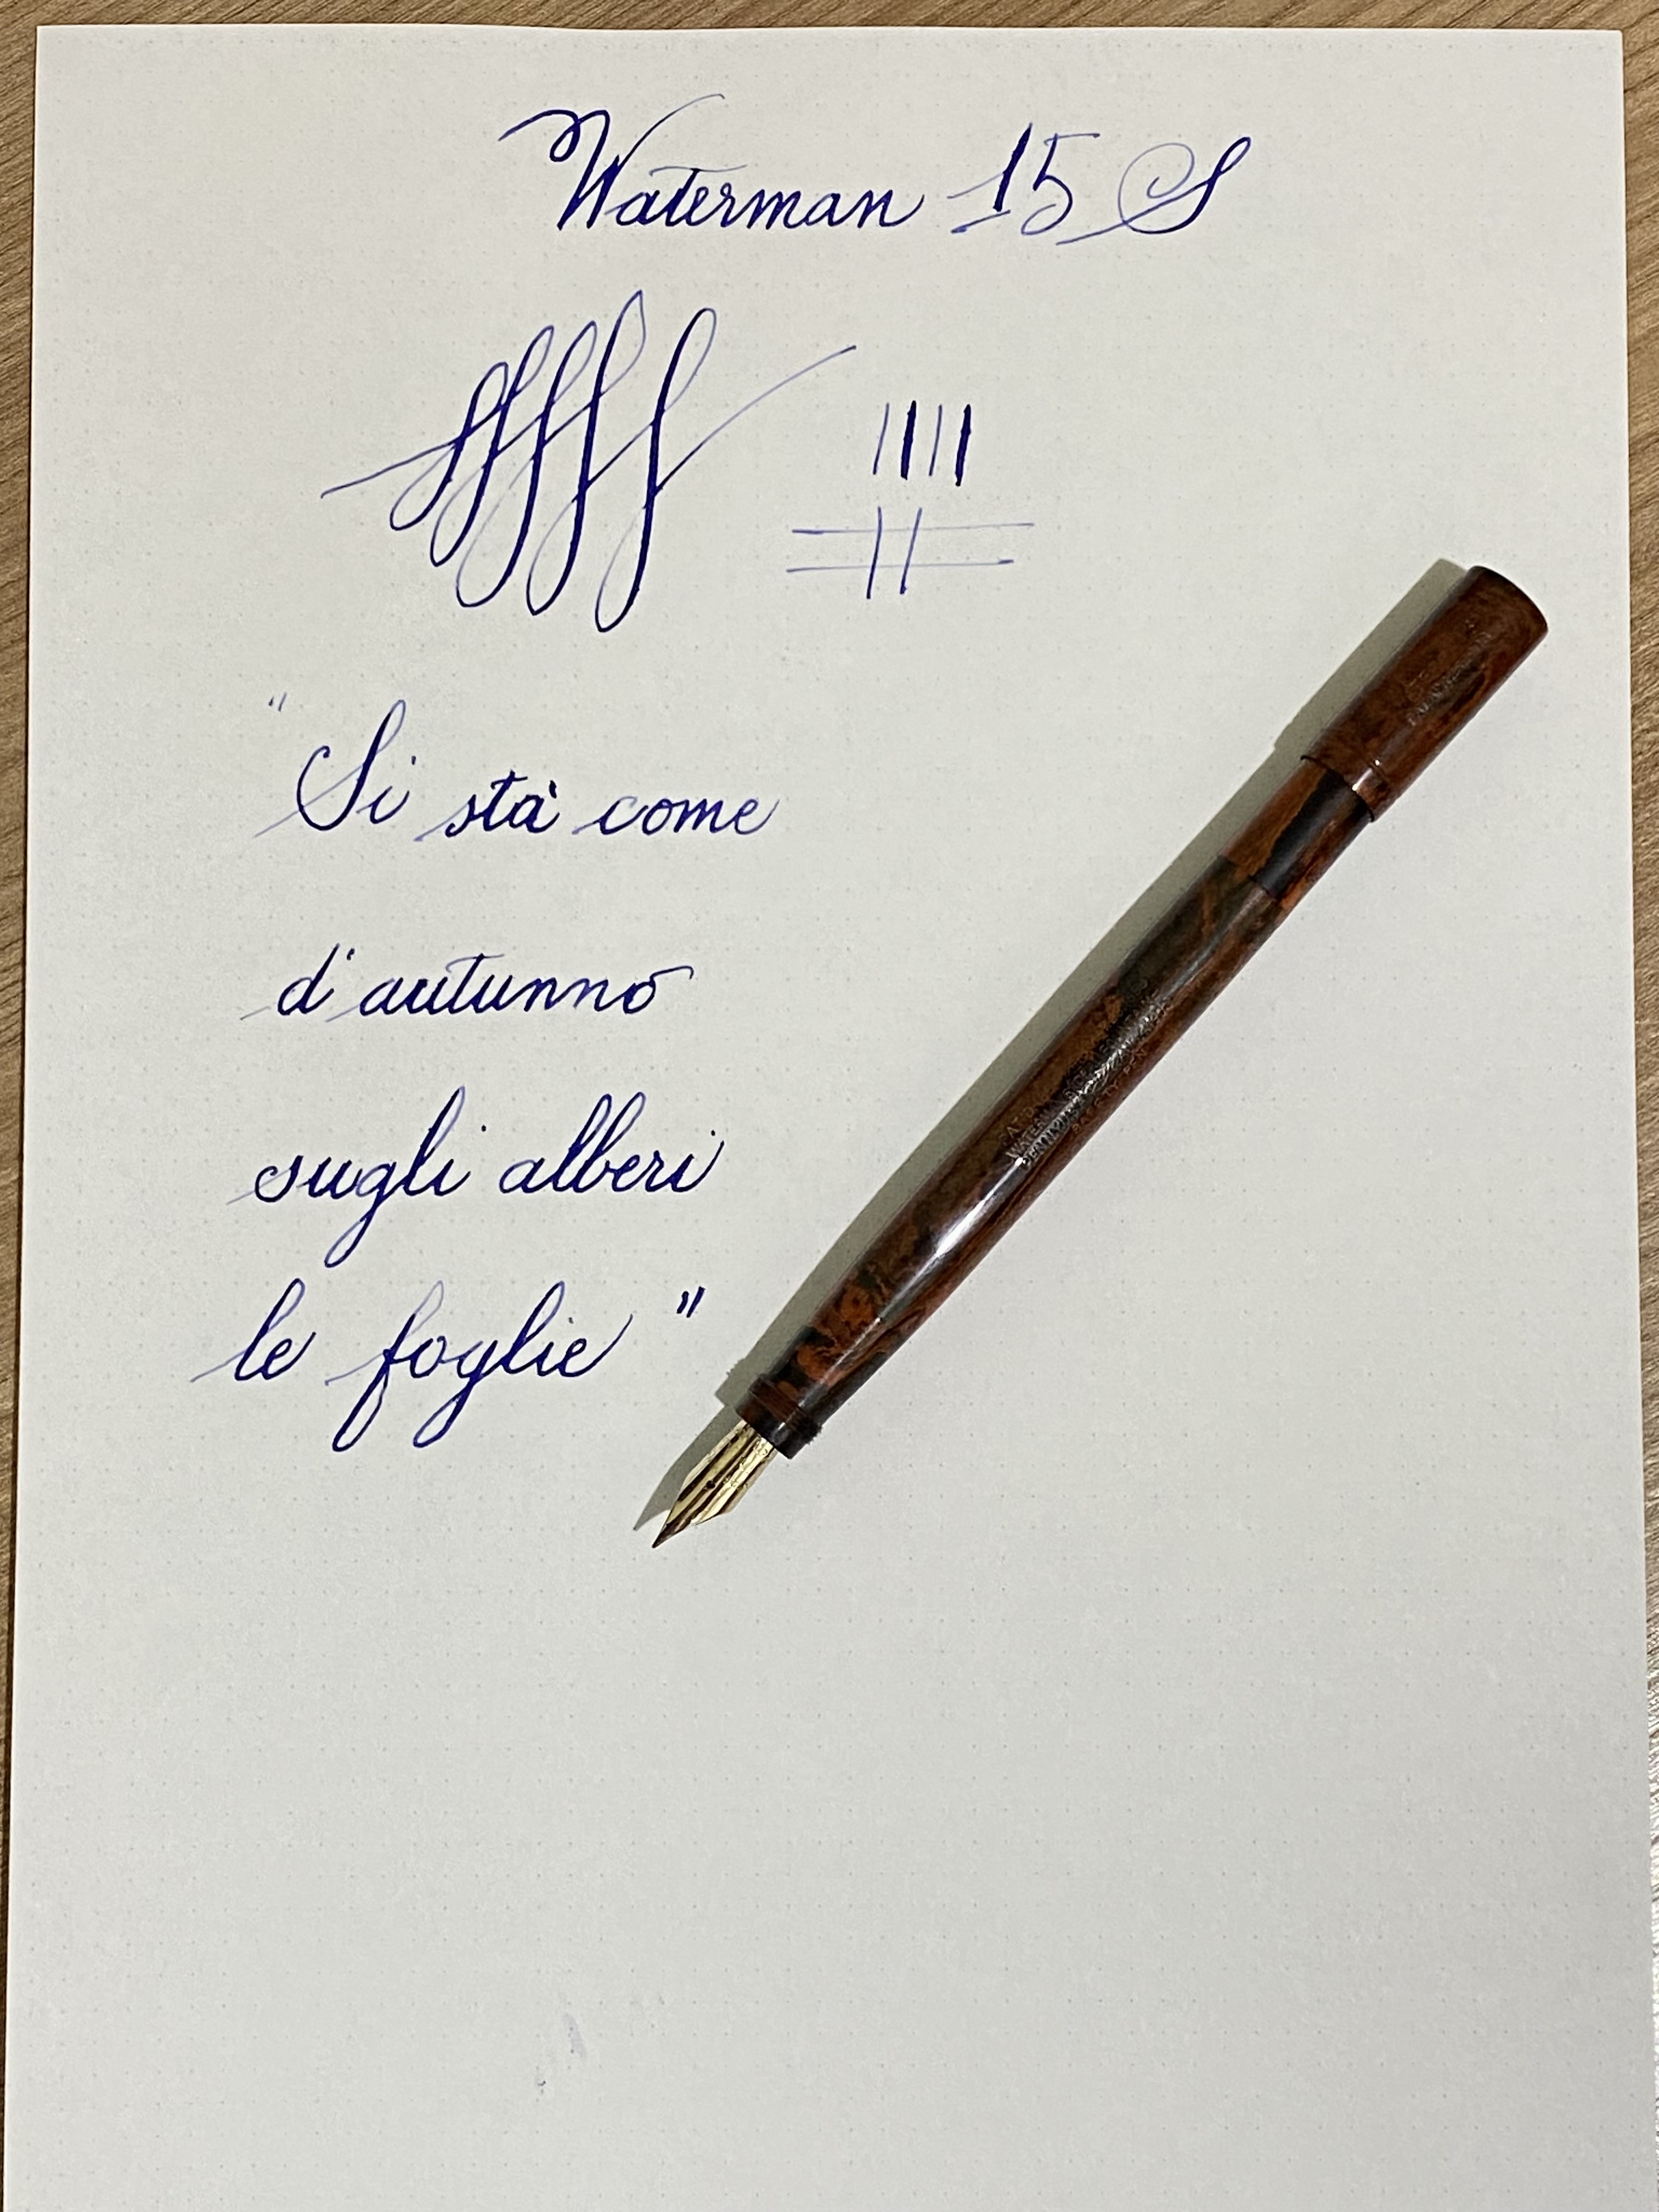 Waterman 15 S
"Si stà come
d'autunno
sugli alberi
le foglie"